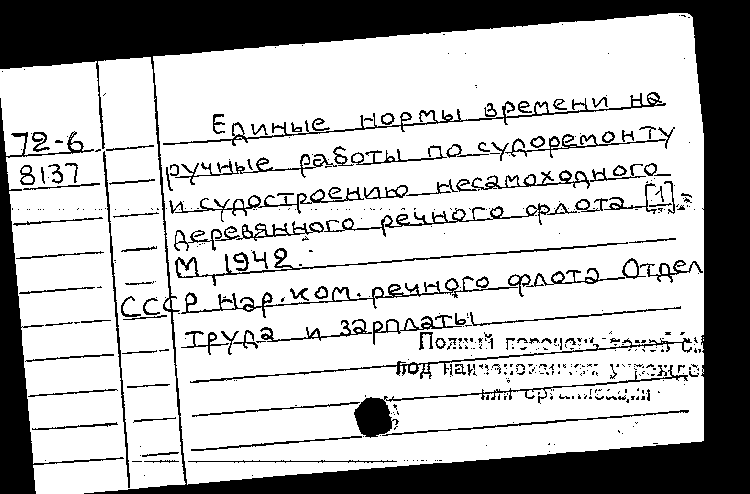 72-6
8137
Единые нормы времени на
ручные работы по судоремонту
и судостроению несамоходного
деревянного речного флота [1]
М, 1942.
СССР Нар.ком.речного флота Отдел
труда и зарплаты
Полный перечень томов см
под наименованием учрежде
или организации